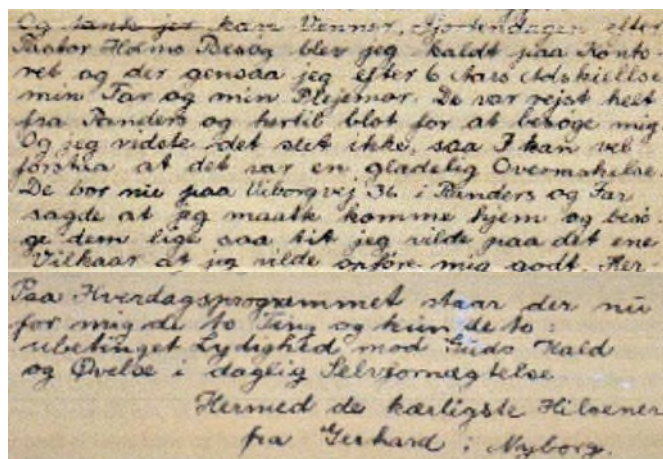 Og tænk jer kære Venner, fjortendagen efter
Pastor Holmo Besøg blev jeg kaldt paa Konto-
ret og der gensaa jeg efter 6 Aars Adskillelse
min Far og min Plejemor. De var rejst helt
fra Randers og hertil blot for at besøge mig
Og jeg vidste det slet ikke, saa I kan vel
forstaa at det var en glædelig Overraskelse.
De bor nu paa Viborgvej 36 i Randers og Far
sagde at jeg maatte komme hjem og besø-
ge dem lige saa tit jeg vilde paa det ene
Vilkaar at jeg vilde opføre mig godt. Her-
Paa Hverdagsprogrammet staar der nu
for mig de to Ting og kun de to:
ubetinget Lydighed mod Guds Kald
og Øvelse i daglig Selvfornægtelse
Hermed de kærligste Hilsener
fra Gerhard i Nyborg.